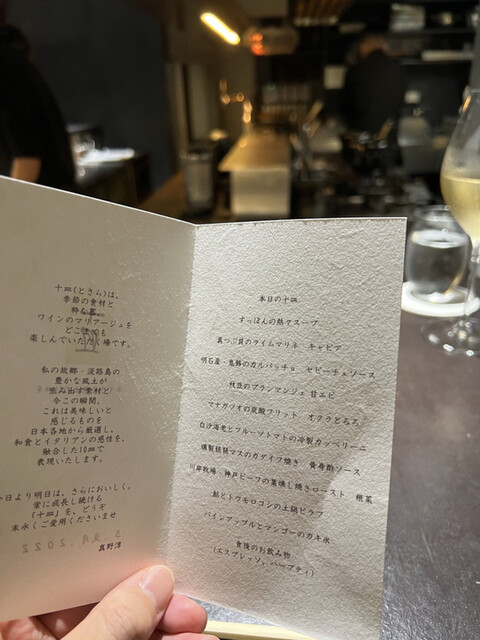 十皿(とさら)は、
季節の食材と
粋な器、
ワインのマリアージュを
どこまでも
楽しんでいただく場です。
私の故郷・淡路島の
豊かな風土が
生み出す素材と
今この瞬間、
これは美味しいと
感じるものを
日本各地から厳選し、
和食とイタリアンの感性を、
融合した10皿で
表現いたします。
今日より明日は、さらにおいしく。
常に成長し続ける
「十皿」を、どうぞ
末永くご愛用くださいませ
真野淳
本日の十皿
すっぽんの熱々スープ
真つぶ貝のライムマリネ キャビア
明石産・鬼鯵のカルパッチョ セビーチェソース
枝豆のブランマンジェ 甘エビ
マナガツオの炭酸フリット オクラとろろ
白沙海老とフルーツトマトの冷製カッペリーニ
燻製銀鮭マスのカダイフ焼き 黄身酢ソース
川岸牧場・神戸ビーフの藁燻し焼きロースト 根菜
鮎とトウモロコシの土鍋ピラフ
パインアップルとマンゴーのカキ氷
食後のお飲み物
(エスプレッソ, ハーブティ)